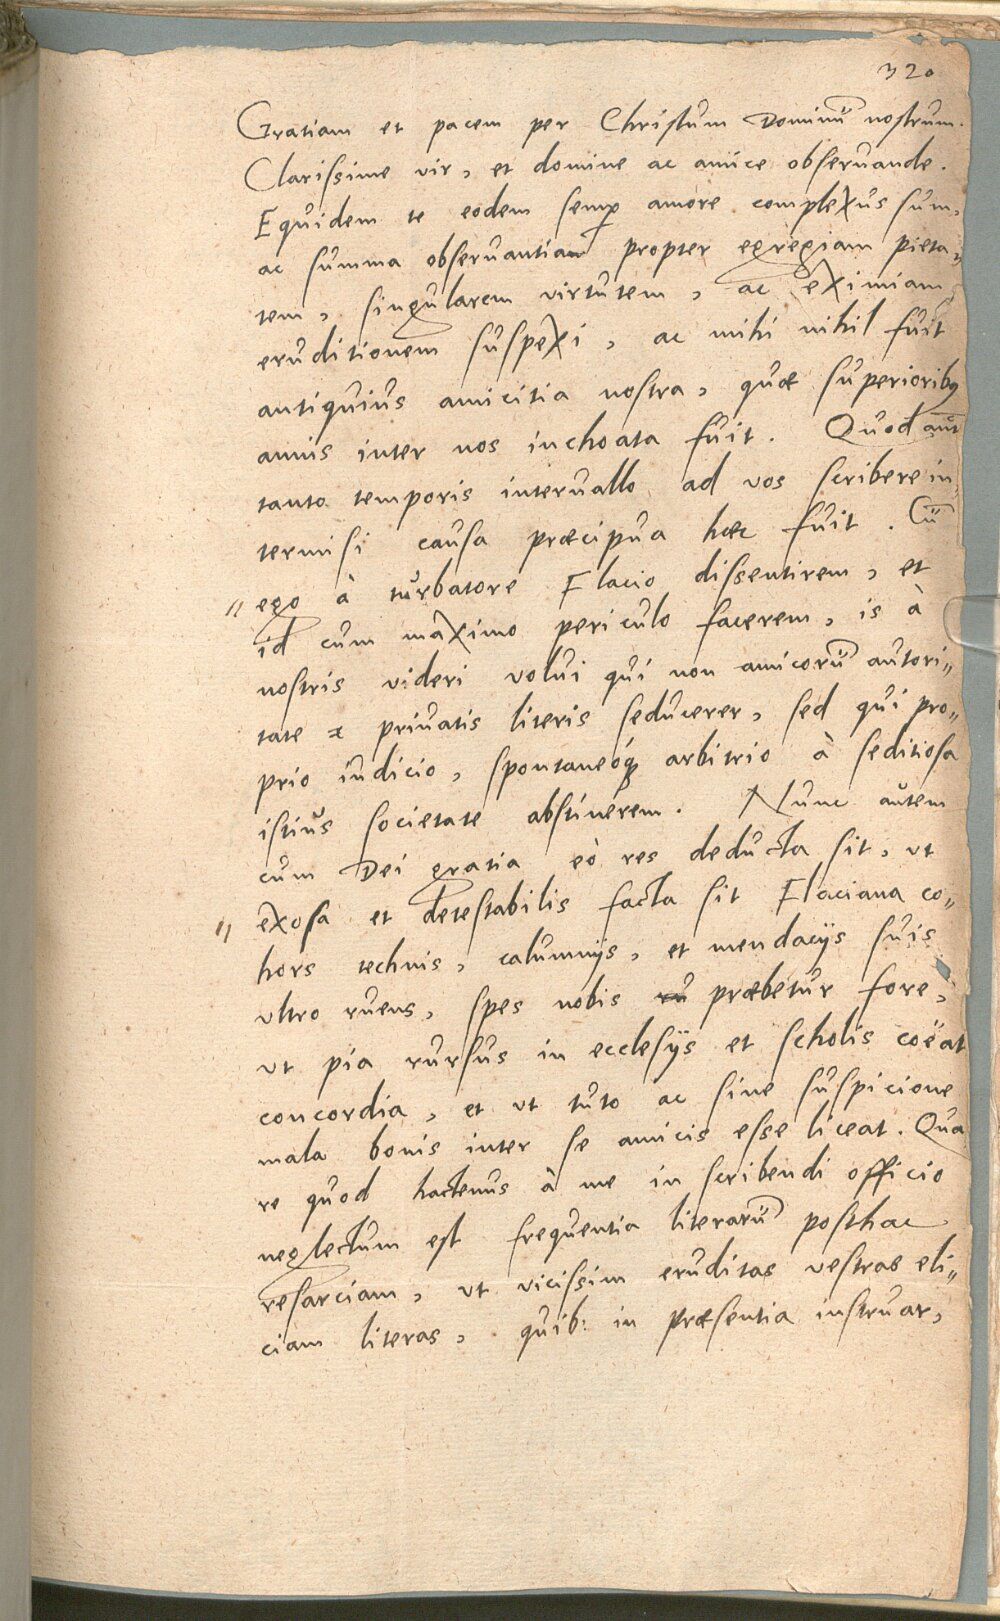 320
Gratiam et pacem per Christum Dominū nostrum.
Clarissime vir, et domine ac amice obseruande.
Equidem te eodem semꝑ amore complexus sum,
ac summa obseruantiam propter egregiam pieta„
tem, singularem virtutem, ac eximiam
eruditionem suspexi, ac mihi nihil fuit
antiquius amicitia nostra, quæ superioribꝰ
annis inter nos inchoata fuit. Quod aūt
tanto temporis interuallo ad vos scribere in„
termisi causa præcipua hæc fuit. Cū
„ ego à turbatore Flacio dissentirem, et
id cum maximo periculo facerem, is à
nostris videri volui qui non amicorū autori„
tate & priuatis literis seducerer, sed qui pro„
prio iudicio, spontaneoq́ꝫ arbitrio à seditiosa
istius societate abstinerem. Nunc autem
cum Dei gratia eò res deducta sit, vt
„ exosa et detestabilis facta sit Flaciana co„
hors technis, calumnijs, et mendacijs suis
vltro ruens, spes nobis præbetur fore,
vt pia rursus in ecclesijs et scholis coëat
concordia, et vt tuto ac sine suspicione
mala bonis inter se amicis esse liceat. Qua
re quod hactenus à me in scribendi officio
neglectum est frequentia literarū posthac
resarciam, vt vicissim eruditas vestras eli„
ciam literas, quib: in præsentia instruar,